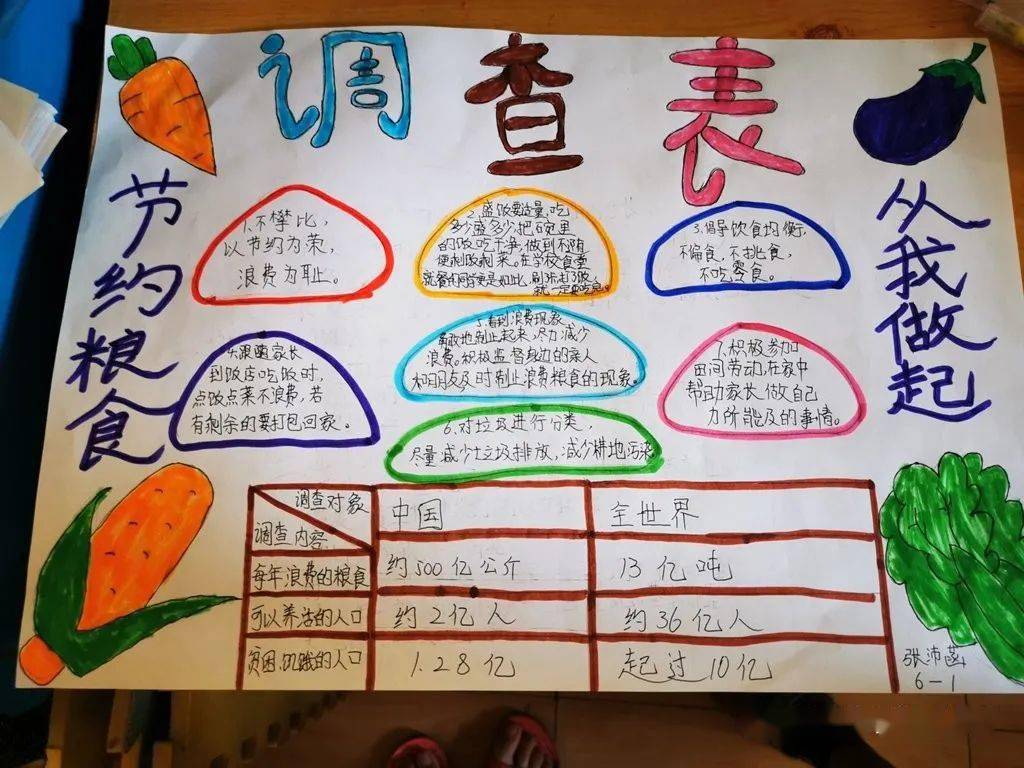 调查表
节约粮食
从我做起
1.不攀比,
以节约为荣,
浪费为耻。
2.盛饭要适量,吃
多少盛多少,把碗里
的饭吃干净,做到不随
便剩饭剩菜。在学校食堂
就餐时
3.倡导饮食均衡,
不偏食,不挑食,
不吃零食。
4.跟随家长
到饭店吃饭时,
点饭点菜不浪费,若
有剩余的要打包回家。
5.看到浪费现象
勇敢地制止起来,尽力减少
浪费。积极监督身边的亲人
和朋友及时制止浪费粮食的现象。
6.对垃圾进行分类,
尽量减少垃圾排放,减少耕地污染
7.积极参加
田间劳动,在家中
帮助家长做自己
力所能及的事情。
调查对象
调查内容
中国
全世界
每年浪费的粮食
约500亿公斤
13亿吨
可以养活的人口
约2亿人
约36亿人
贫困、饥饿的人口
1.28亿
起过10亿
张沛菡
6-1